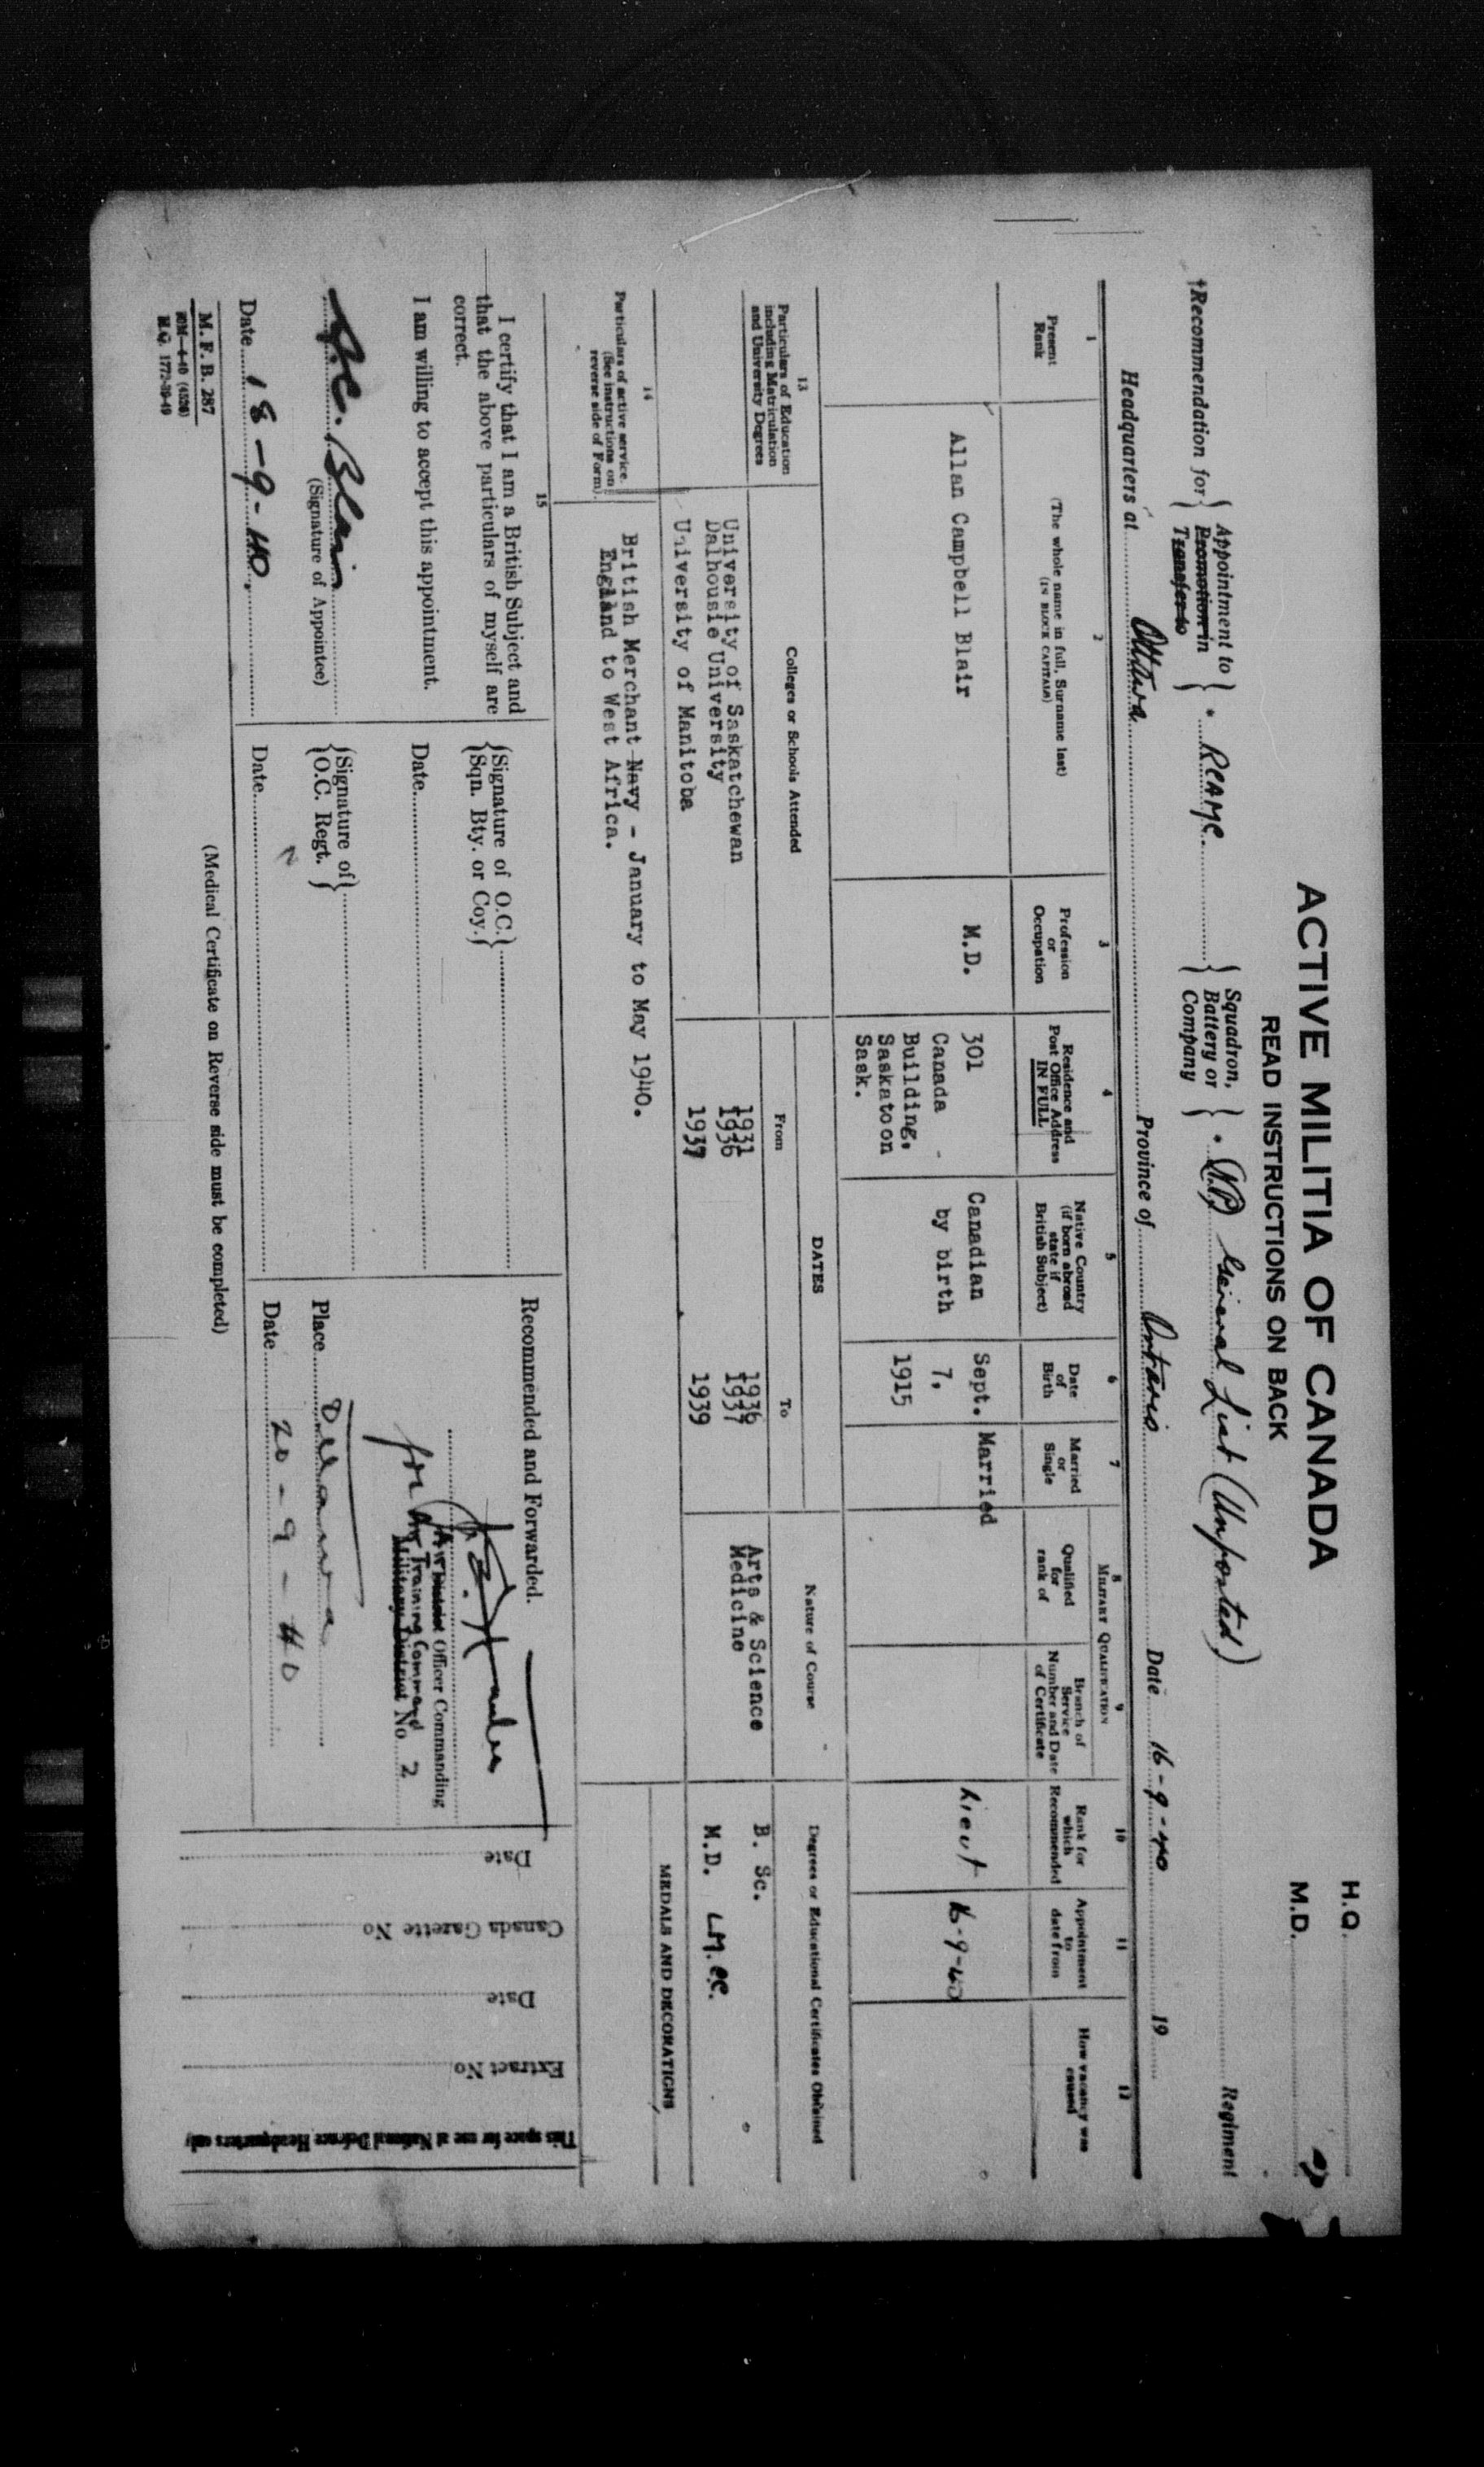 H.Q.
M.D. 2
ACTIVE MILITIA OF CANADA
READ INSTRUCTIONS ON BACK
†Recommendation for { Appointment to Promotion in Transfer to } * RCAMC. { Squadron, Battery or Company } * (N.P.) General List (Unposted) Regiment
Headquarters at Ottawa Province of Ontario Date 16-9-40 19
1
Present
Rank
2
(The whole name in full, Surname last)
(IN BLOCK CAPITALS)
3
Profession
or
Occupation
4
Residence and
Post Office Address
IN FULL
5
Native Country
(if born abroad
state if
British Subject)
6
Date
of
Birth
7
Married
or
Single
MILITARY QUALIFICATION
8
Qualified
for
rank of
9
Branch of
Service
Number and Date
of Certificate
10
Rank for
which
Recommended
11
Appointment
to
date from
12
How vacancy was
caused
Allan Campbell Blair
M.D.
301
Canada
Building,
Saskatoon
Sask.
Canadian
by birth
Sept.
7,
1915
Married
Lieut
16-9-40
13
Particulars of Education
including Matriculation
and University Degrees
Colleges or Schools Attended
DATES
From
To
Nature of Course
Degrees or Educational Certificates Obtained
University of Saskatchewan 1931 1936 Arts & Science B. Sc.
Dalhousie University 1936 1937 Medicine
University of Manitoba 1937 1939 M.D. LM.CC.
14
Particulars of active service.
(See instructions on
reverse side of Form).
British Merchant Navy - January to May 1940.
England to West Africa.
MEDALS AND DECORATIONS
15
I certify that I am a British Subject and
that the above particulars of myself are
correct.
I am willing to accept this appointment.
A.C. Blair
(Signature of Appointee)
Date 18-9-40.
{Signature of O.C.
Sqn. Bty. or Coy.}
Date
{Signature of
O.C. Regt.}
Date
Recommended and Forwarded.
for
Air District Officer Commanding
Air Training Command
Military District No. 2
Place Ottawa
Date 20-9-40
Date
Canada Gazette No
Date
Extract No
This space for use at National Defence Headquarters only
(Medical Certificate on Reverse side must be completed)
M. F. B. 287
20M-4-40 (4526)
H.Q. 1772-39-49